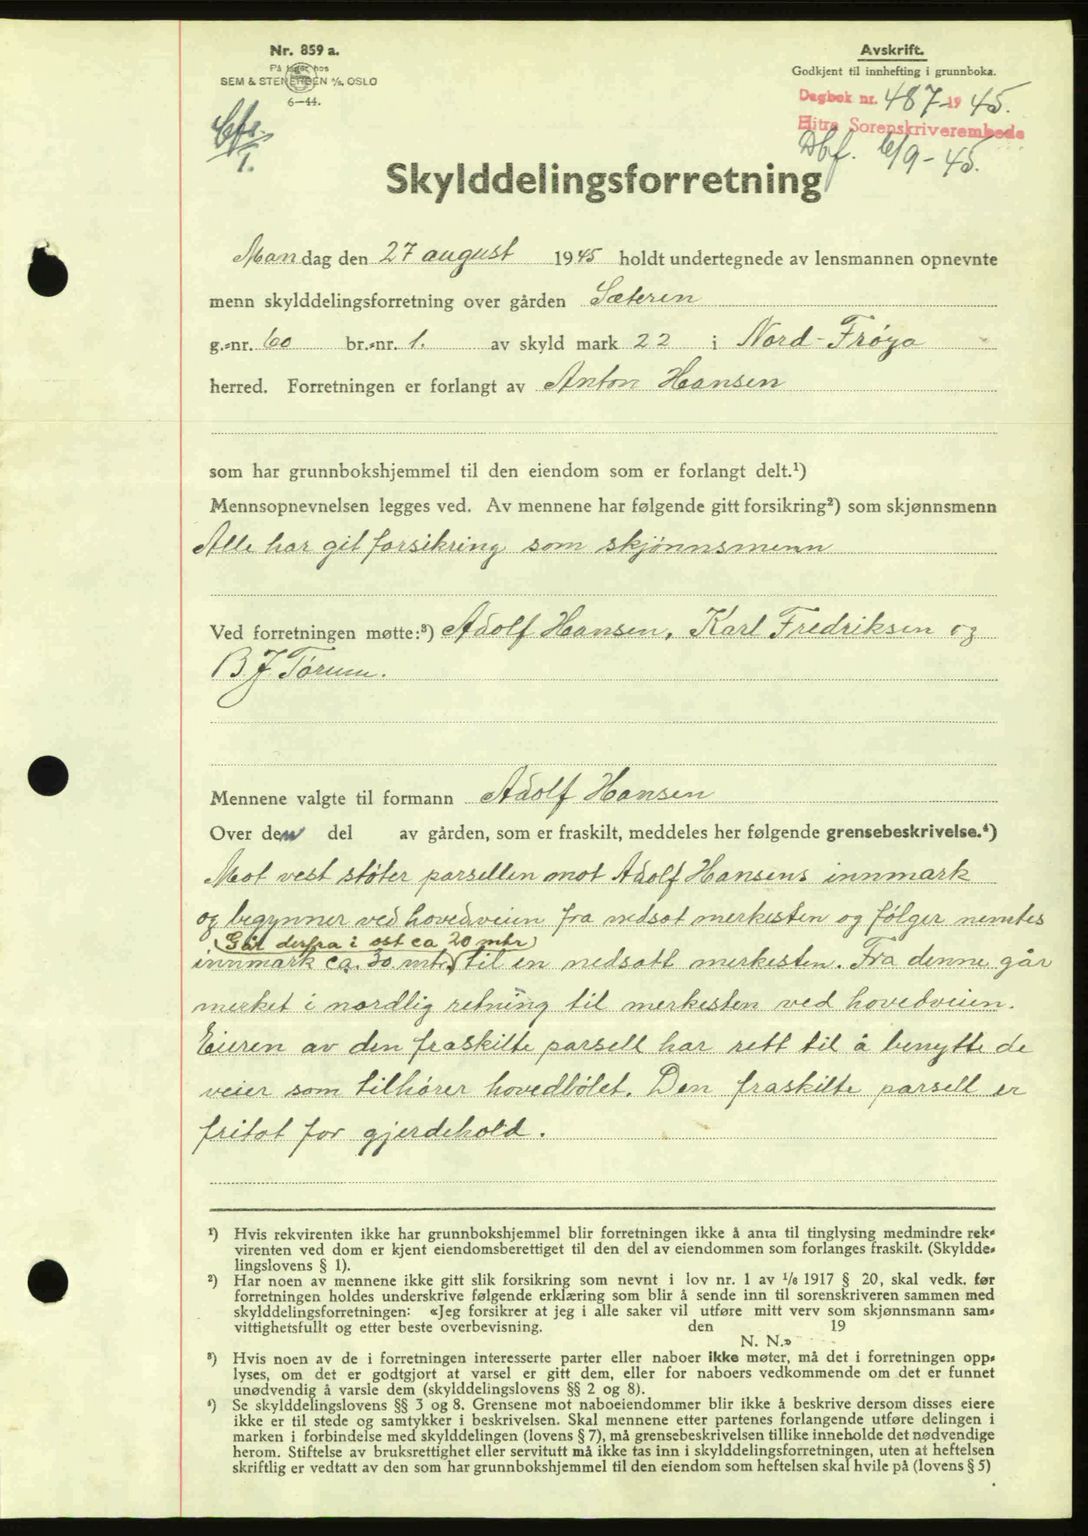 Nr. 859 a.
På lager hos
SEM & STENERSEN A/S, OSLO
6—44.
Avskrift.
Godkjent til innhefting i grunnboka.
Dagbok nr. 487-1945.
Hitra Sorenskriverembede
Dbf. 6/9-45.
Skylddelingsforretning
Mandag den 27 august 1945 holdt undertegnede av lensmannen opnevnte
menn skylddelingsforretning over gården Sæteren
g.-nr. 60 br.-nr. 1. av skyld mark 22 i Nord-Frøya
herred. Forretningen er forlangt av Anton Hansen
som har grunnbokshjemmel til den eiendom som er forlangt delt.¹)
Mennsopnevnelsen legges ved. Av mennene har følgende gitt forsikring²) som skjønnsmenn
Alle har git forsikring som skjønnsmenn
Ved forretningen møtte:³) Adolf Hansen, Karl Fredriksen og
B. J. Tørum.
Mennene valgte til formann Adolf Hansen
Over den del av gården, som er fraskilt, meddeles her følgende grensebeskrivelse.⁴)
Mot vest støter parsellen mot Adolf Hansens innmark
og begynner ved hovedveien fra nedsat merkesten og følger nemtes
(Går derfra i øst ca 20 mtr)
innmark ca. 30 mtr. til en nedsatt merkesten. Fra denne går
merket i nordlig retning til merkesten ved hovedveien.
Eieren av den fraskilte parsell har rett til å benytte de
veier som tilhører hovedbølet. Den fraskilte parsell er
fritat for gjerdehold.
¹) Hvis rekvirenten ikke har grunnbokshjemmel blir forretningen ikke å anta til tinglysing medmindre rek-
virenten ved dom er kjent eiendomsberettiget til den del av eiendommen som forlanges fraskilt. (Skyldde-
lingslovens § 1).
²) Har noen av mennene ikke gitt slik forsikring som nevnt i lov nr. 1 av 1/6 1917 § 20, skal vedk. før
forretningen holdes underskrive følgende erklæring som blir å sende inn til sorenskriveren sammen med
skylddelingsforretningen: «Jeg forsikrer at jeg i alle saker vil utføre mitt verv som skjønnsmann sam-
vittighetsfullt og etter beste overbevisning. den 19
N. N.»
³) Hvis noen av de i forretningen interesserte parter eller naboer ikke møter, må det i forretningen opp-
lyses, om det er godtgjort at varsel er gitt dem, eller for naboers vedkommende om det er funnet
unødvendig å varsle dem (skylddelingslovens §§ 2 og 8).
⁴) Se skylddelingslovens §§ 3 og 8. Grensene mot naboeiendommer blir ikke å beskrive dersom disses eiere
ikke er til stede og samtykker i beskrivelsen. Skal mennene etter partenes forlangende utføre delingen i
marken i forbindelse med skylddelingen (lovens § 7), må grensebeskrivelsen tillike inneholde det nødvendige
herom. Stiftelse av bruksrettighet eller servitutt må ikke tas inn i skylddelingsforretningen, uten at heftelsen
skriftlig er vedtatt av den som har grunnbokshjemmel til den eiendom som heftelsen skal hvile på (lovens § 5)